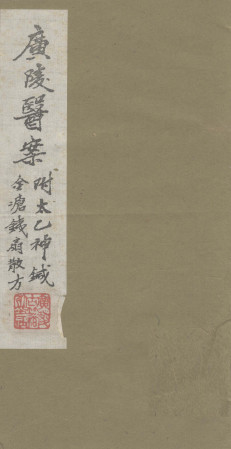 廣陵醫案
附太乙神鍼
金瘡鐵扇散方